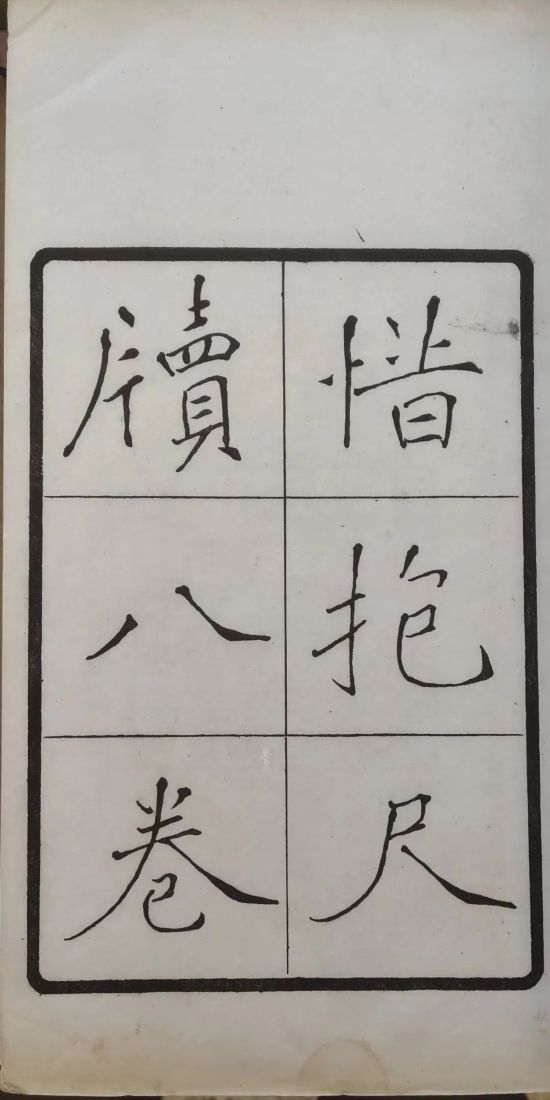 惜抱尺
牘八卷